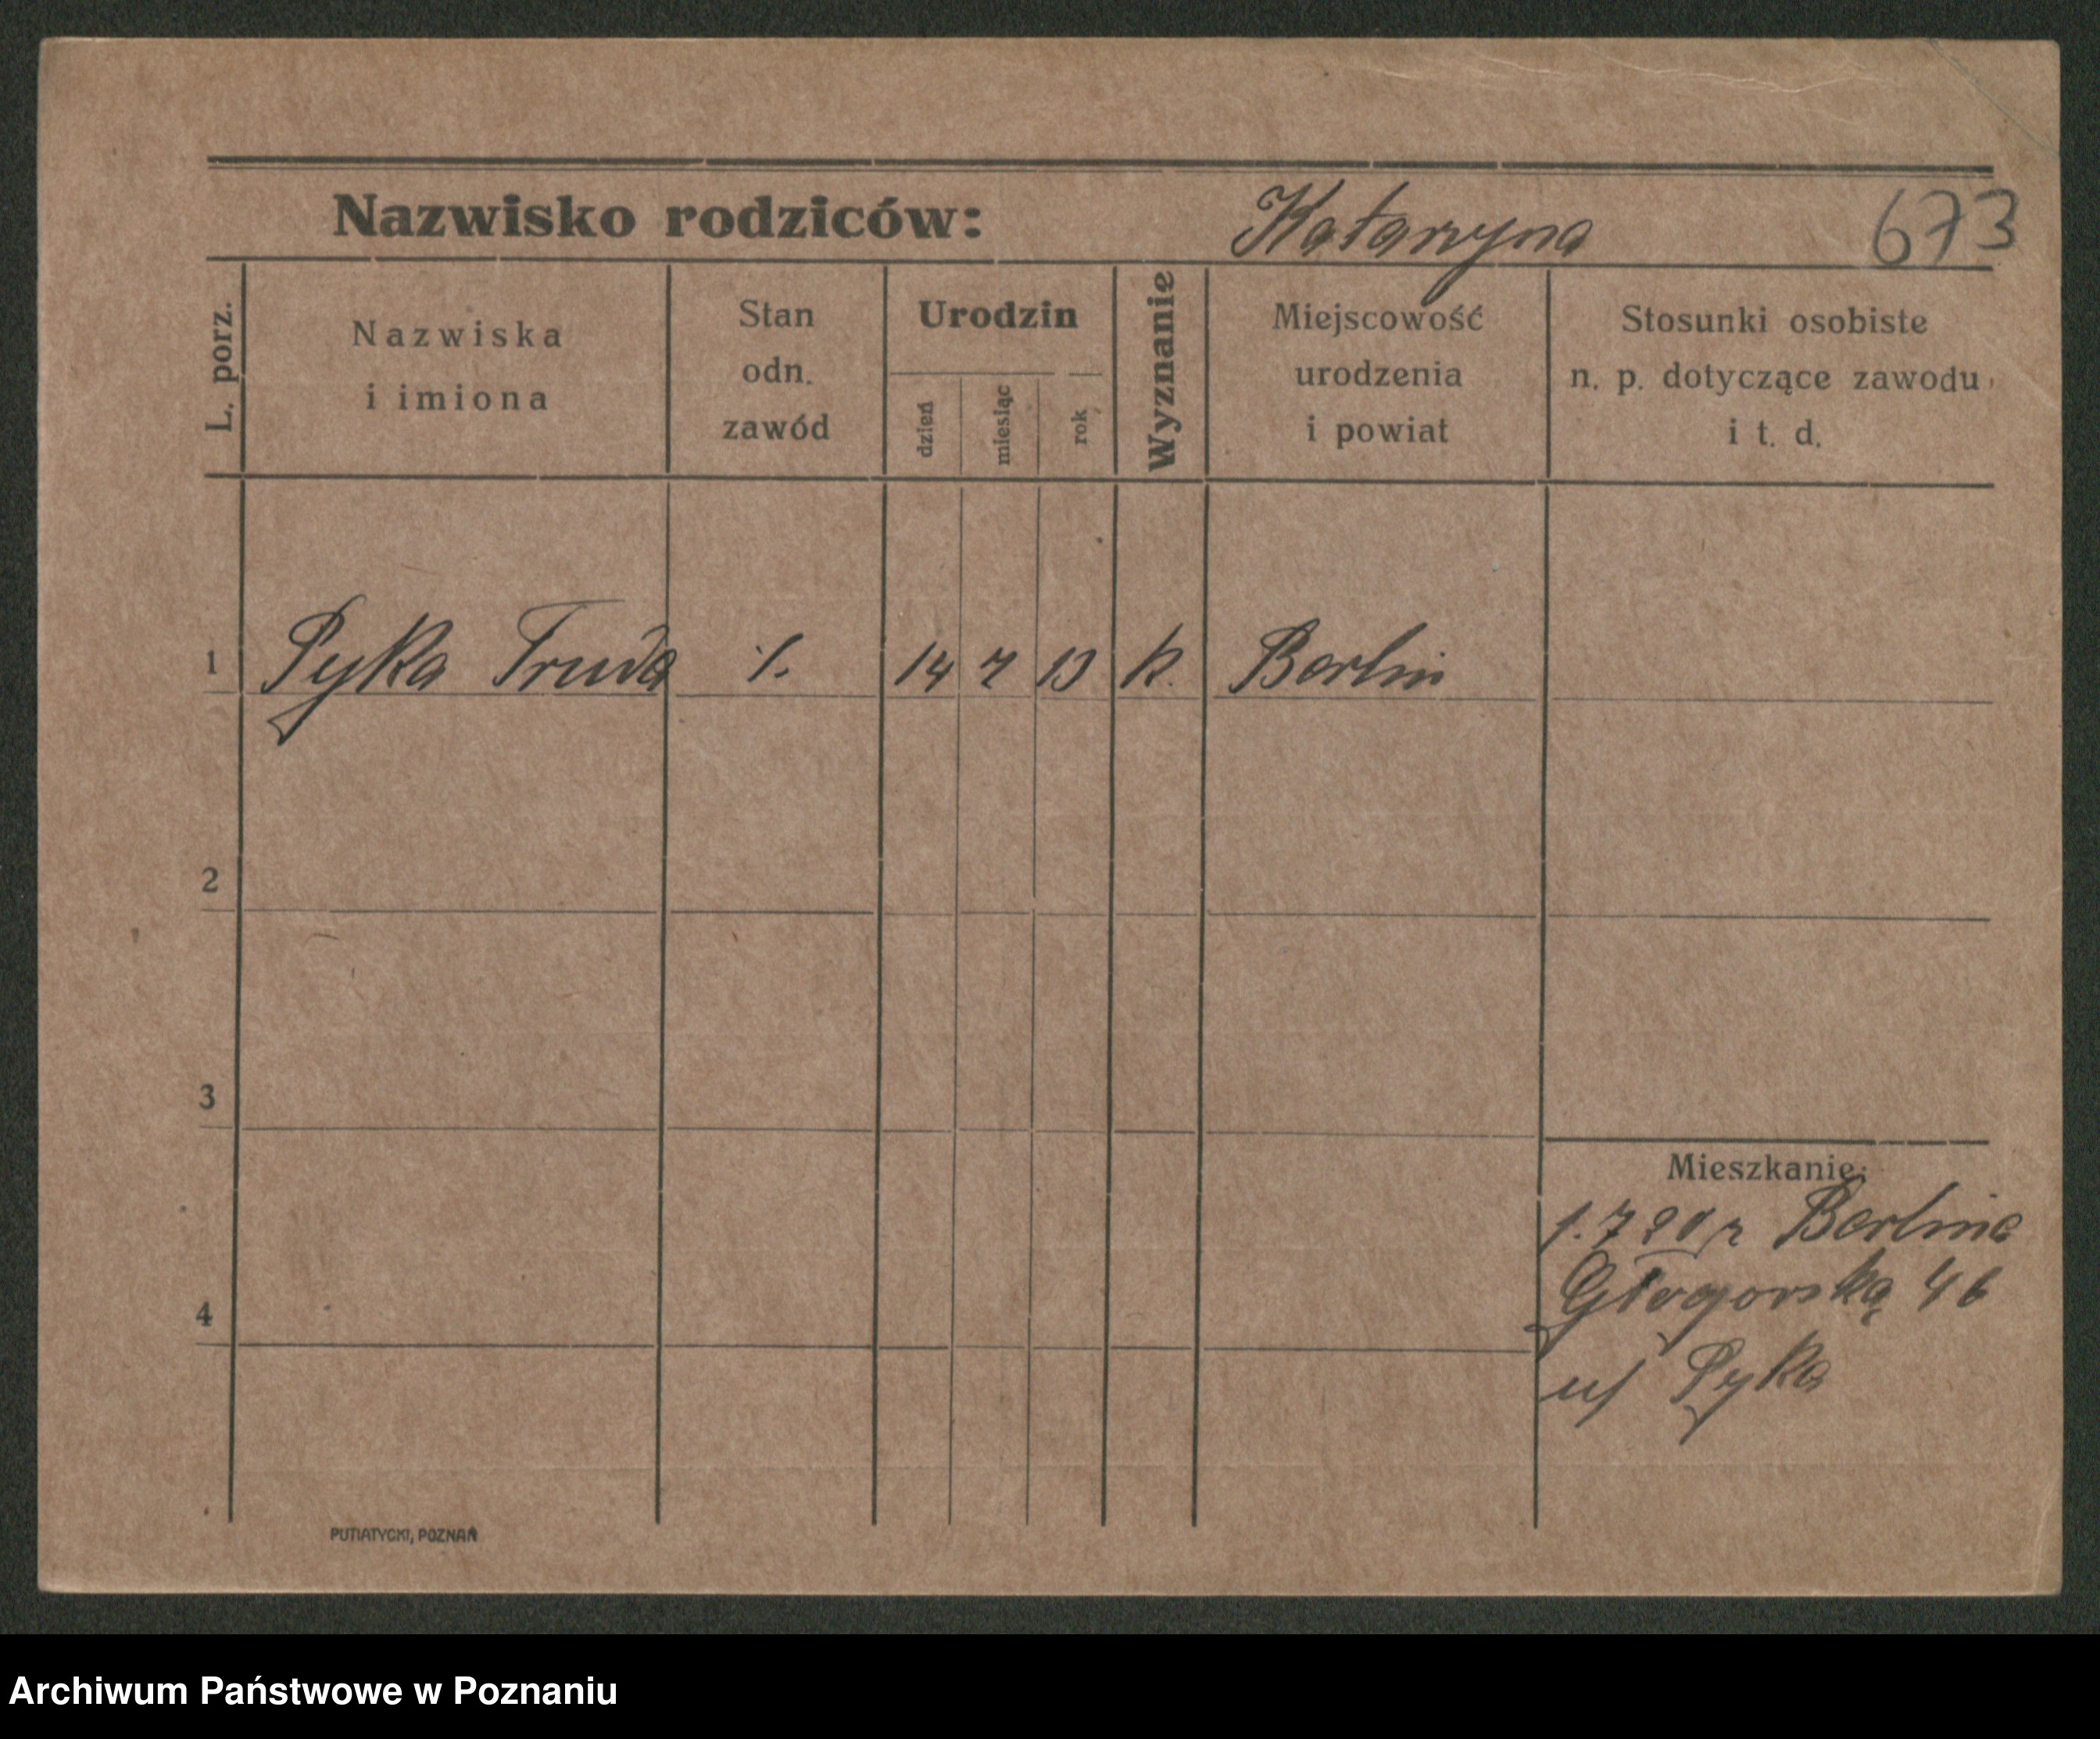 Nazwisko rodziców: Katarzyna 673
L. porz.
Nazwiska
i imiona
Stan
odn.
zawód
Urodzin
dzień
miesiąc
rok
Wyznanie
Miejscowość
urodzenia
i powiat
Stosunki osobiste
n. p. dotyczące zawodu
i t. d.
1 Pyka Truda ·/. 14 7 13 k. Berlin
2
3
Mieszkanie:
1.7 20 z Berlina
4
Głogowską 46
u/ Pyka
PUTIATYCKI, POZNAŃ
Archiwum Państwowe w Poznaniu